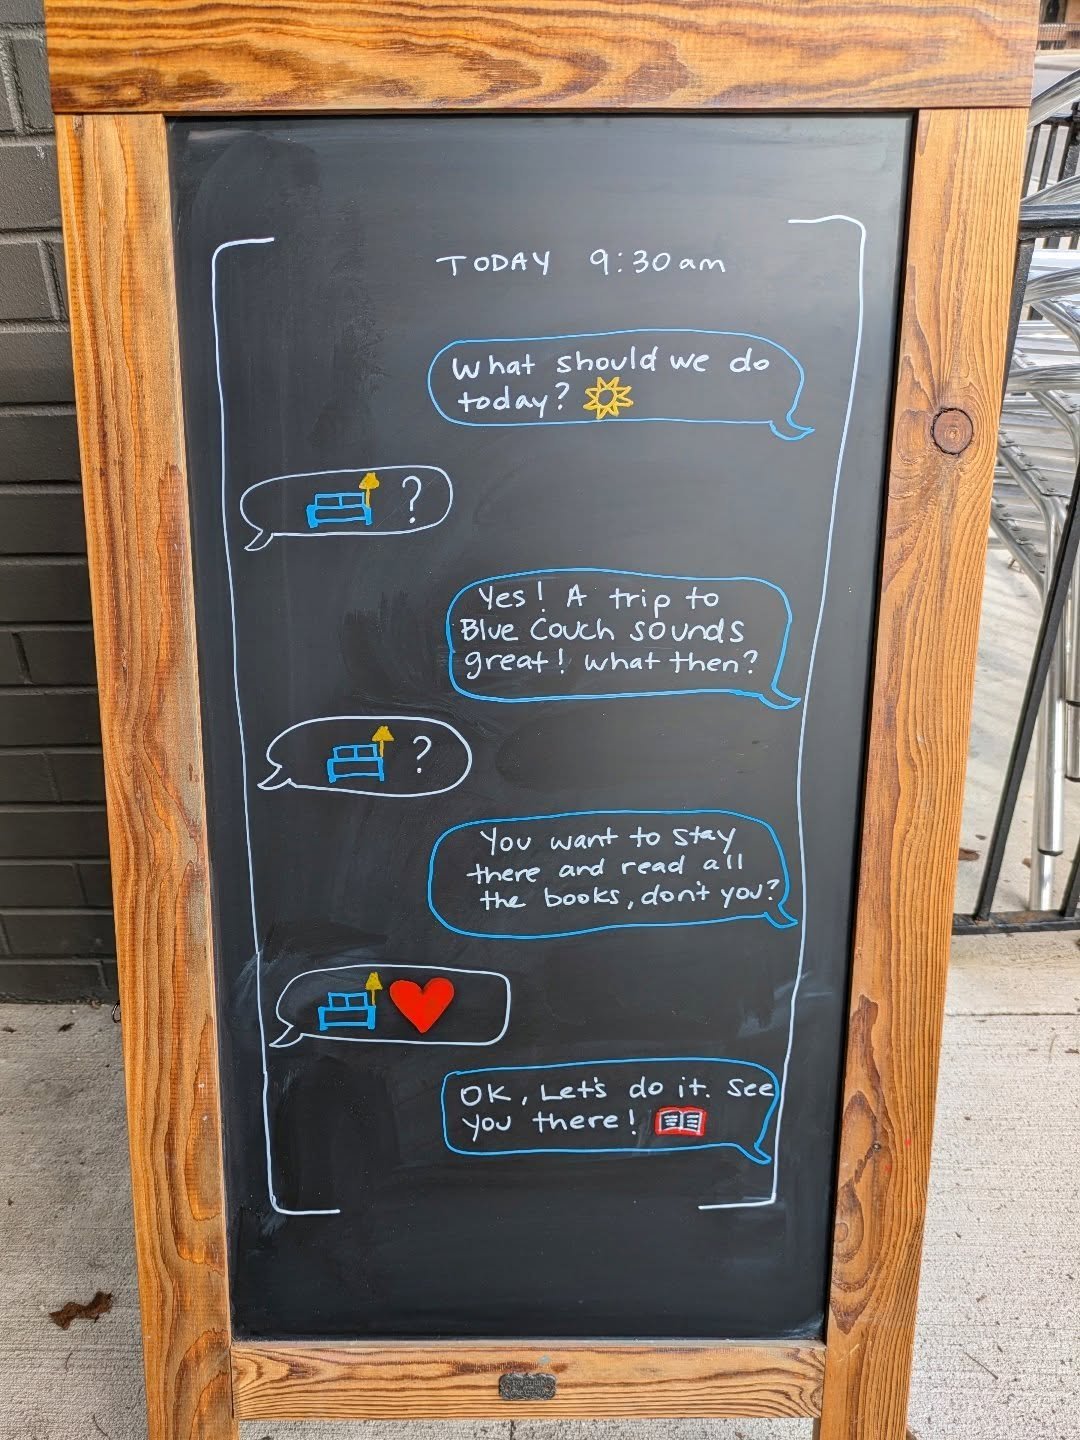 TODAY 9:30am
What should we do
today?
?
Yes! A trip to
Blue Couch sounds
great! what then?
?
You want to stay
there and read all
the books, don't you?
OK, Let's do it. See
you there!